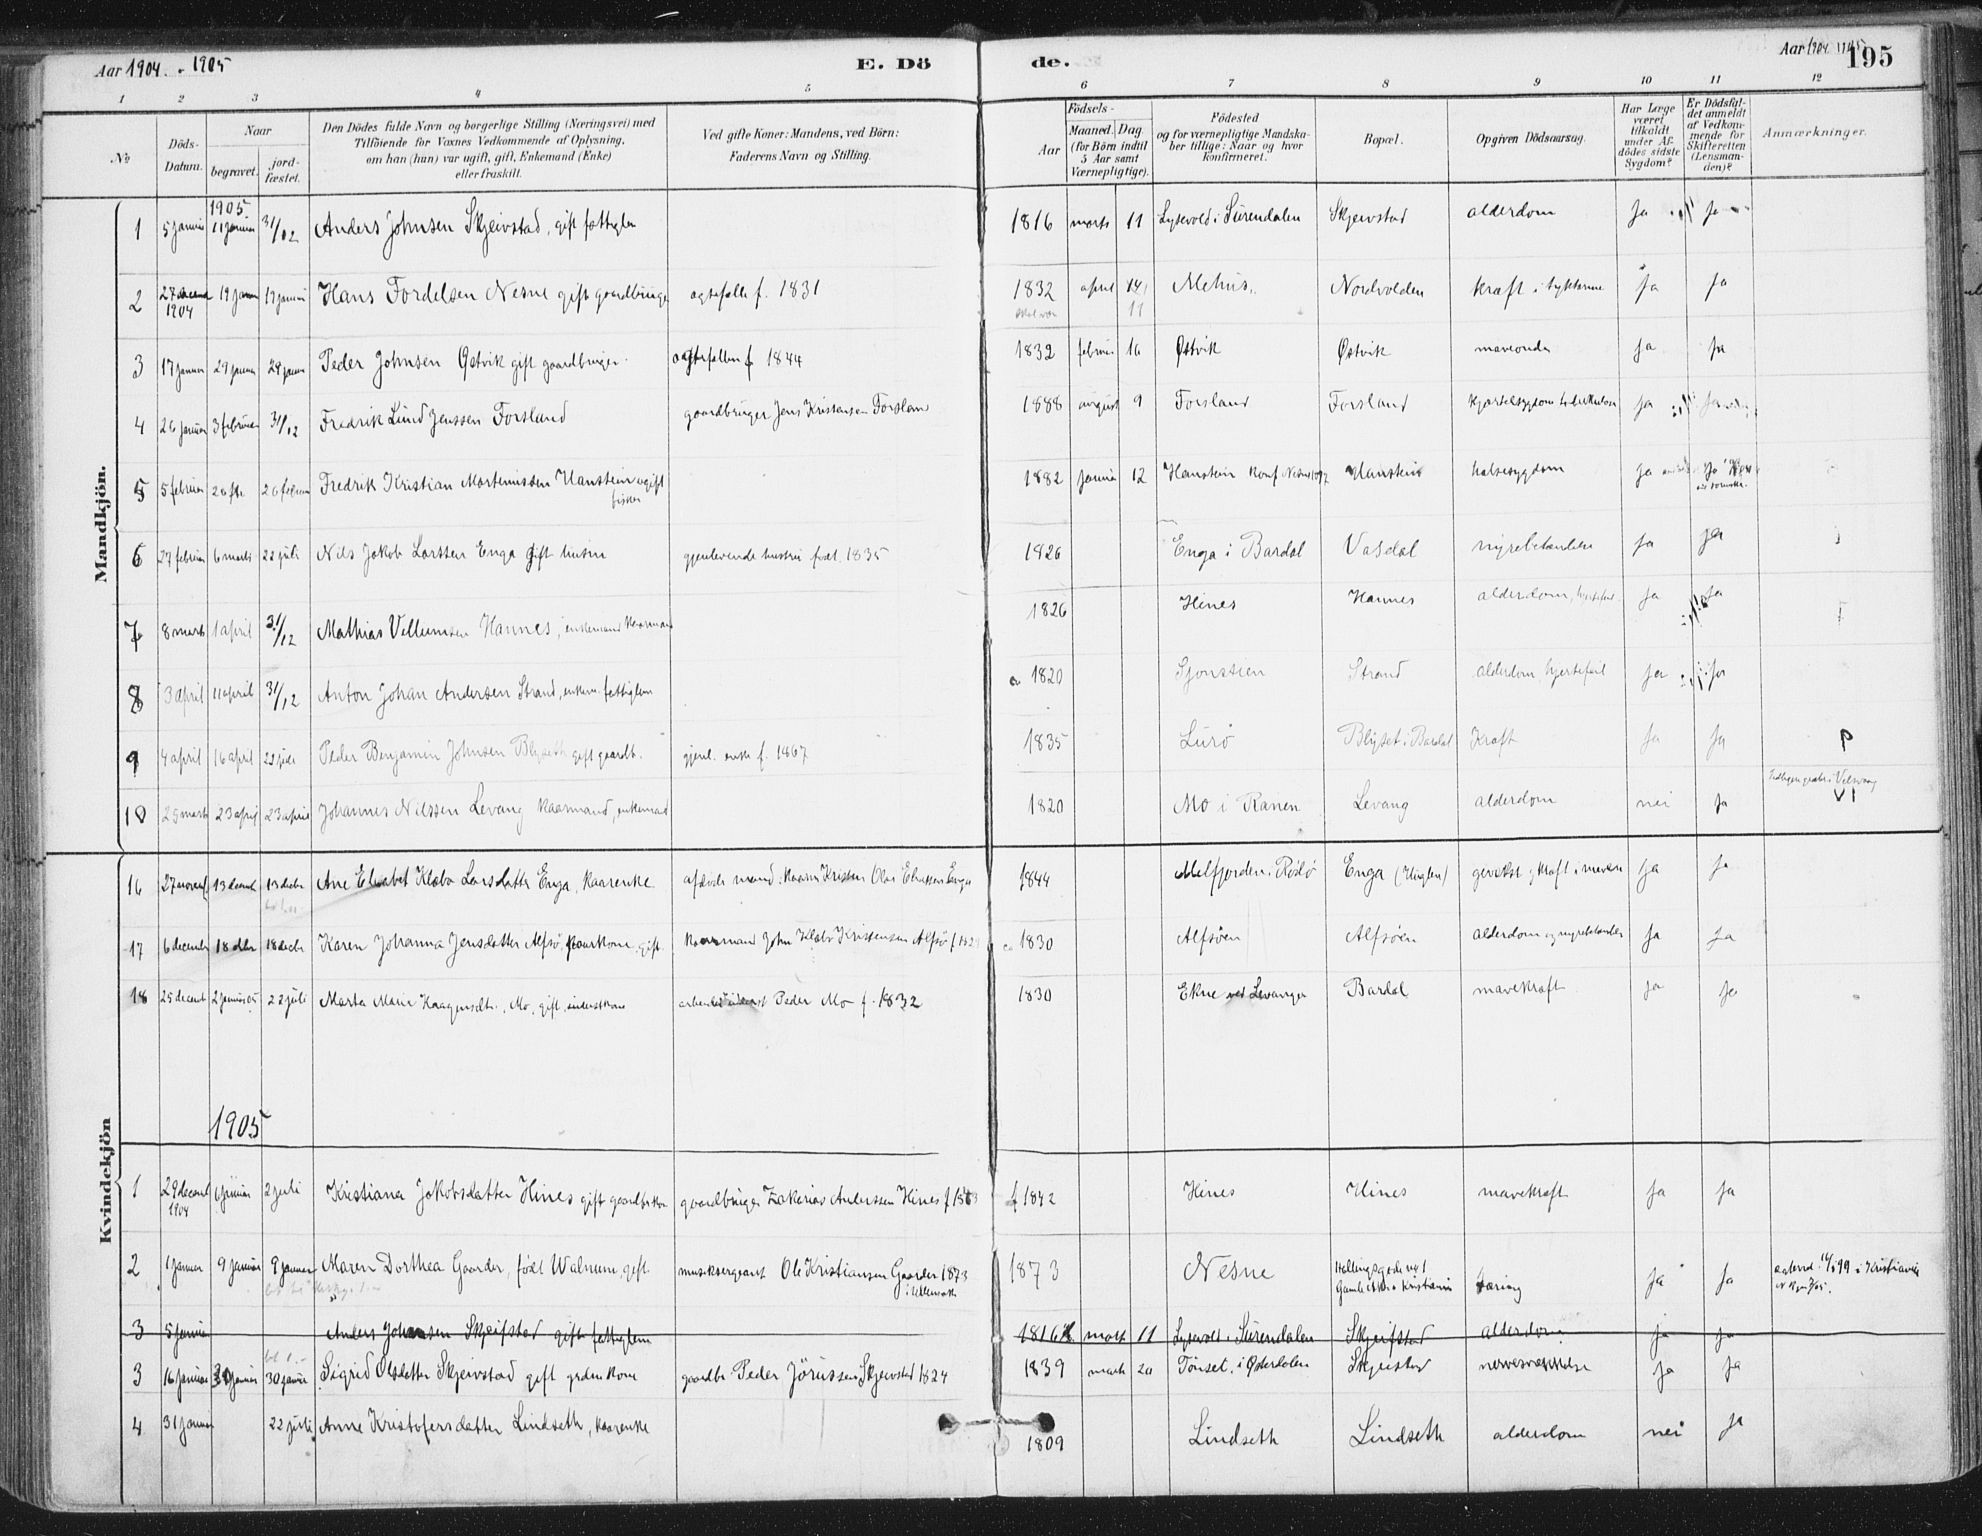 Aar 1904 - 1905 E. Dö
de. Aar 1904 1905 195
1 2 3 4 5
6 7 8 9 10 11 12
No Döds-Datum. Naar begravet. jord-fæstet. Den Dödes fulde Navn og borgerlige Stilling (Næringsvei) med Tilföiende for Voxnes Vedkommende af Oplysning, om han (hun) var ugift, gift, Enkemand (Enke) eller fraskilt. Ved gifte Koner: Mandens, ved Börn: Faderens Navn og Stilling.
Födsels- Aar Maaned. Dag. (for Börn indtil 5 Aar samt Værnepligtige). Födested og for værnepligtige Mandskaber tillige: Naar og hvor konfirmeret. Bopæl. Opgiven Dödsaarsag. Har Læge været tilkaldt under Afdödes sidste Sygdom? Er Dödsfaldet anmeldt af Vedkommende for Skifteretten (Lensmanden)? Anmærkninger.
Mandkjön.
1905
1 5 januar 11 januar 31/12 Anders Johnsen Skjeivstad, gift fattiglem 1816 marts 11 Lysevold i Surendalen Skjeivstad alderdom ja ja
2 27 decemb 1904 19 januar 19 januar Hans Fordelsen Nesne gift gaardbruger ægtefælle f. 1831 1832 april 14 11 Mehus Nordvolden kræft i tyktarme ja ja
3 17 januar 29 januar 29 januar Peder Johnsen Østvik gift gaardbruger ægtefællen f 1844 1832 februar 16 Østvik Østvik maveonde ja ja
4 26 januar 3 februar 31/12 Fredrik Lund Jenssen Forsland gaardbruger Jens Kristensen Forsland 1888 august 9 Forsland Forsland kjertelsygdom tuberkulose ja ja
5 5 februar 26 feb 26 februar Fredrik Kristian Mortenissen Hanstein ugift fisker 1882 januar 12 Hanstein Konf Nesne 1897 Hanstein halsesygdom ja ja
6 27 februar 6 marts 22 juli Nils Jakob Larssen Enga gift husm gjenlevende hustru født 1835 1826 Enga i Bardal Vasdal nyrebetændelse ja ja
7 8 marts 1 april 31/12 Mathias Vellumsen Hannes, enkemand kaarmand 1826 Hines Hannes alderdom, hjertefeil ja ja
8 3 april 11 april 31/12 Anton Johan Andersen Strand, enkem. fattiglem 1820 Sjonstien Strand alderdom, hjertefeil ja ja
9 4 april 16 april 22 juli Peder Benjamin Johnsen Blyseth gift gaardb. gjenl. enke f. 1867 1835 Lurø Blyset i Bardal Kræft ja ja P
10 25 marts 23 april 23 april Johannes Nilssen Levang kaarmand, enkemand 1820 Mo i Ranen Levang alderdom nei ja VI
Kvindekjön
16 27 novemb 13 decemb 13 decbr Ane Elisabet Klæbo Larsdatter Enga, kaarenke afdøde mand: kaarm Kristen Olai Eliassen Enga 1844 Melfjorden i Rödö Enga (Huglen) gevekst, kræft i maven ja ja
17 6 decembr 18 dcbr 18 decbr Karen Johanna Jensdatter Alfsø, kaarkone, gift kaarmand John Klæbo Kristensen Alfsø f 1830 Alfsøen Alfsøen alderdom og nyrebetændelse ja ja
18 25 decemb 2 januar 05 22 juli Marta Marie Haagensdtr. Mo, gift, inderstkone Peder Mo f. 1832 1830 Ekne ved Levanger Bardal mavekræft ja ja
1905
1 29 decemb 1904 6 januar 2 juli Kristiana Jakobsdatter Hines gift gaardbrkone gaardbruger Zakarias Anderssen Hines f 1842 Hines Hines mavekræft ja ja
2 1 januar 9 januar 9 januar Maren Dorthea Gaarder, født Walnum, gift musiksergeant Ole Kristiansen Gaarder 1873 i Ullensaker 1873 Nesne Hellingsgade nr 1 Gamle Aker Kristiania tæring ja ja i Kristiania
3 5 januar Anders Johansen Skjeifstad gift fattiglem 1816 marts 11 Lysevold i Surendalen Skjeifstad alderdom ja ja
3 16 januar 30 januar 30 januar Sigrid Olsdatter Skjeivstad gift grdmkone gaardbr. Peder Jørussen Skjeivstad 1824 1839 marts 20 Tönset i Østerdalen Skjeivstad nervesvækkelse ja ja
4 31 januar 22 juli Anne Kristofersdatter Lindseth, kaarenke 1809 Lindseth Lindseth alderdom nei ja